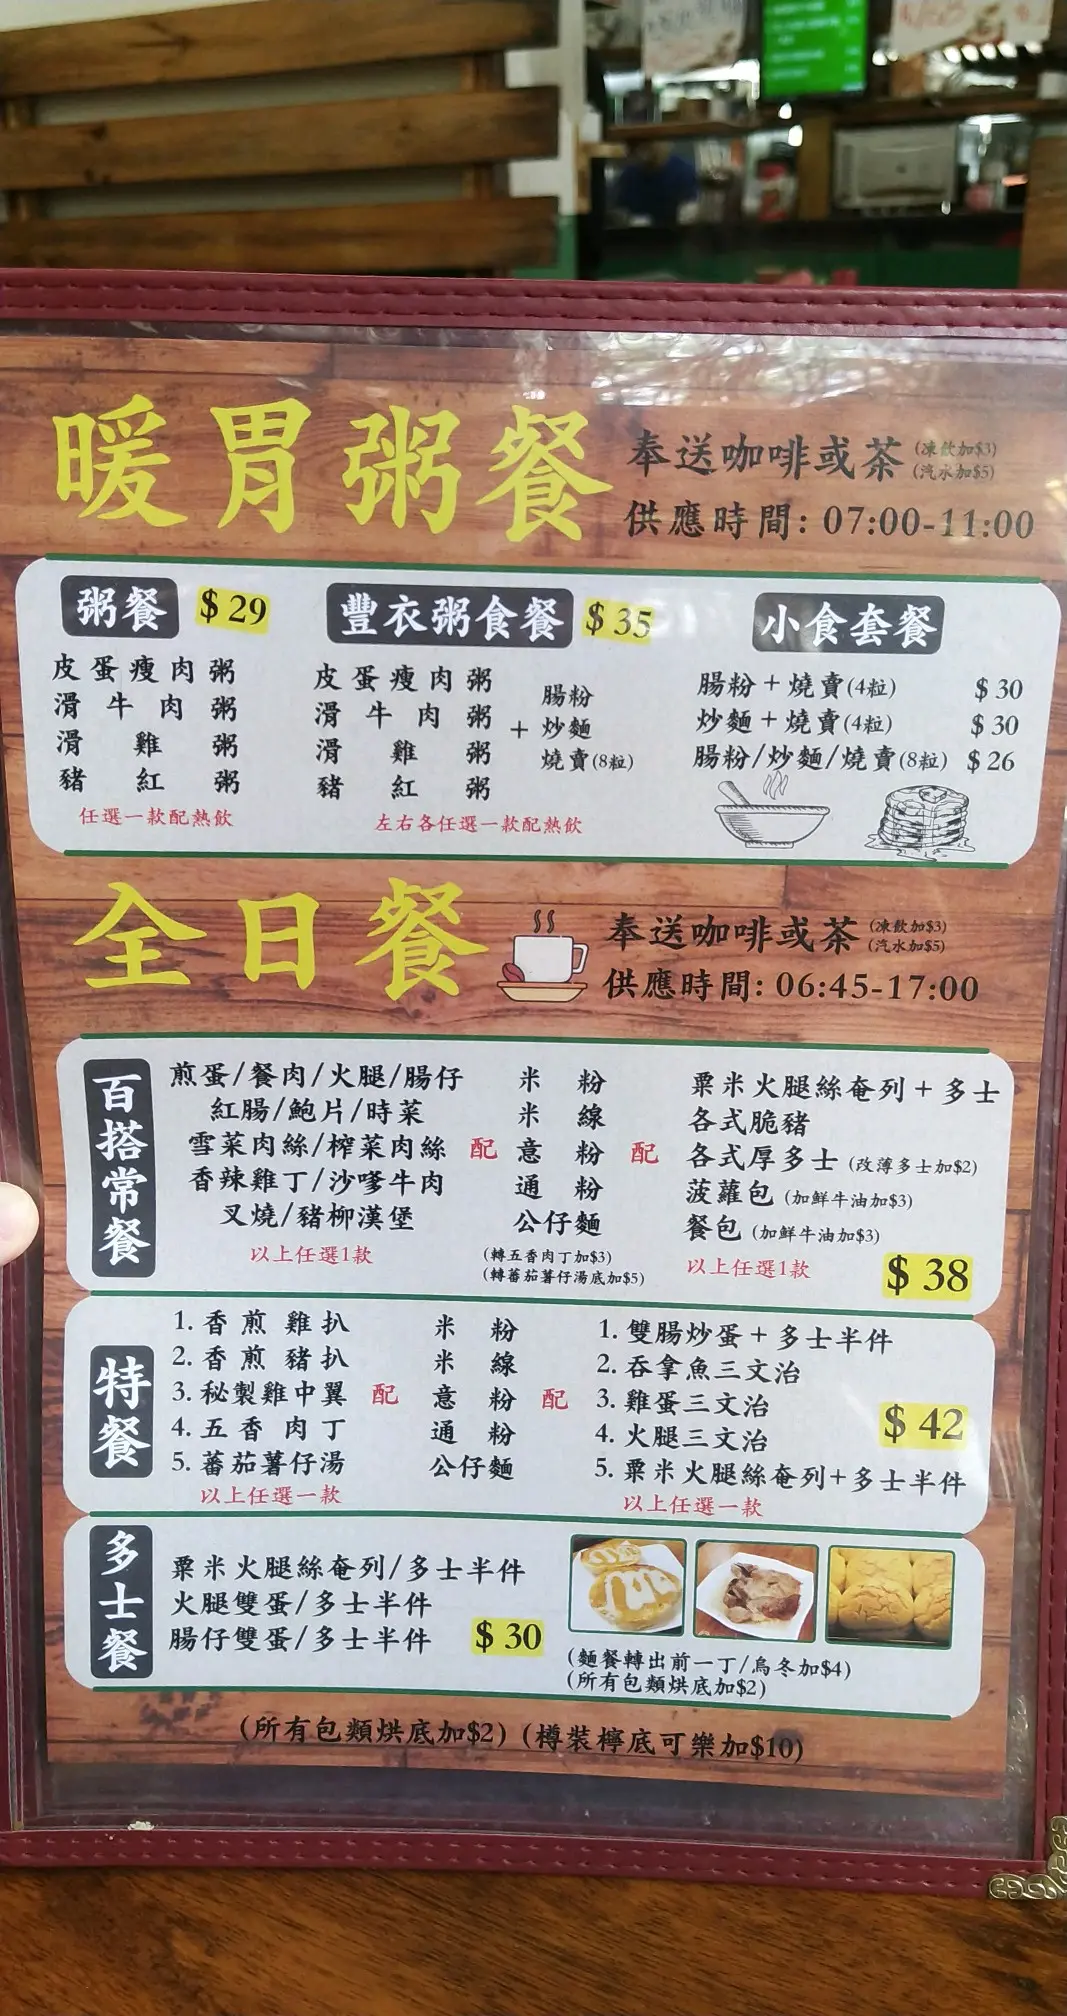 暖胃粥餐
奉送咖啡或茶 (凍飲加$3)
(汽水加$5)
供應時間: 07:00-11:00
粥餐 $29
皮蛋瘦肉粥
滑牛肉粥
滑雞粥
豬紅粥
任選一款配熱飲
豐衣粥食餐 $35
皮蛋瘦肉粥
滑牛肉粥
滑雞粥
豬紅粥
+
腸粉
炒麵
燒賣(8粒)
左右各任選一款配熱飲
小食套餐
腸粉+燒賣(4粒) $30
炒麵+燒賣(4粒) $30
腸粉/炒麵/燒賣(8粒) $26
全日餐
奉送咖啡或茶 (凍飲加$3)
(汽水加$5)
供應時間: 06:45-17:00
百搭常餐
煎蛋/餐肉/火腿/腸仔
紅腸/鮑片/時菜
雪菜肉絲/榨菜肉絲
香辣雞丁/沙嗲牛肉
叉燒/豬柳漢堡
以上任選1款
配
米粉
米線
意粉
通粉
公仔麵
(轉五香肉丁加$3)
(轉蕃茄薯仔湯底加$5)
配
粟米火腿絲奄列+多士
各式脆豬
各式厚多士 (改薄多士加$2)
菠蘿包 (加鮮牛油加$3)
餐包 (加鮮牛油加$3)
以上任選1款
$38
特餐
1. 香煎雞扒
2. 香煎豬扒
3. 秘製雞中翼
4. 五香肉丁
5. 蕃茄薯仔湯
以上任選一款
配
米粉
米線
意粉
通粉
公仔麵
配
1. 雙腸炒蛋+多士半件
2. 吞拿魚三文治
3. 雞蛋三文治
4. 火腿三文治
5. 粟米火腿絲奄列+多士半件
以上任選一款
$42
多士餐
粟米火腿絲奄列/多士半件
火腿雙蛋/多士半件
腸仔雙蛋/多士半件 $30
(麵餐轉出前一丁/烏冬加$4)
(所有包類烘底加$2)
(所有包類烘底加$2) (樽裝檸底可樂加$10)